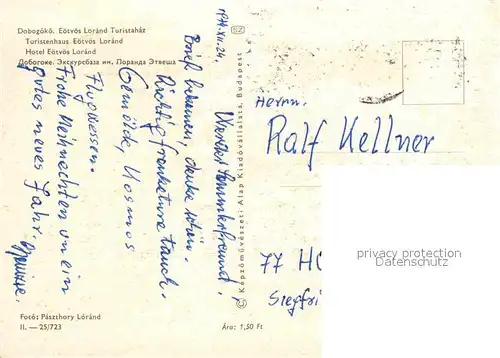 Dobogókő. Eötvös Loránd Turistaház
Turistenhaus Eötvös Loránd
Hotel Eötvös Loránd
Добогокё. Экскурсбаза им. Лоранда Этвеша
Werter Sammlerfreund,
Brief bekommen, danke schön.
Richtig frankieren tausch.
Gemälde, Kosmos
Flugwesen.
Frohe Weihnachten un ein
gutes neues Jahr.
Fotó: Pászthory Lóránd
II. — 25/723
Ára: 1,50 Ft
SZ
© Képzőművészeti Alap Kiadóvállalata, Budapest
Herrn.
Ralf Kellner
77 HO
Siegfri
privacy protection
Datenschutz